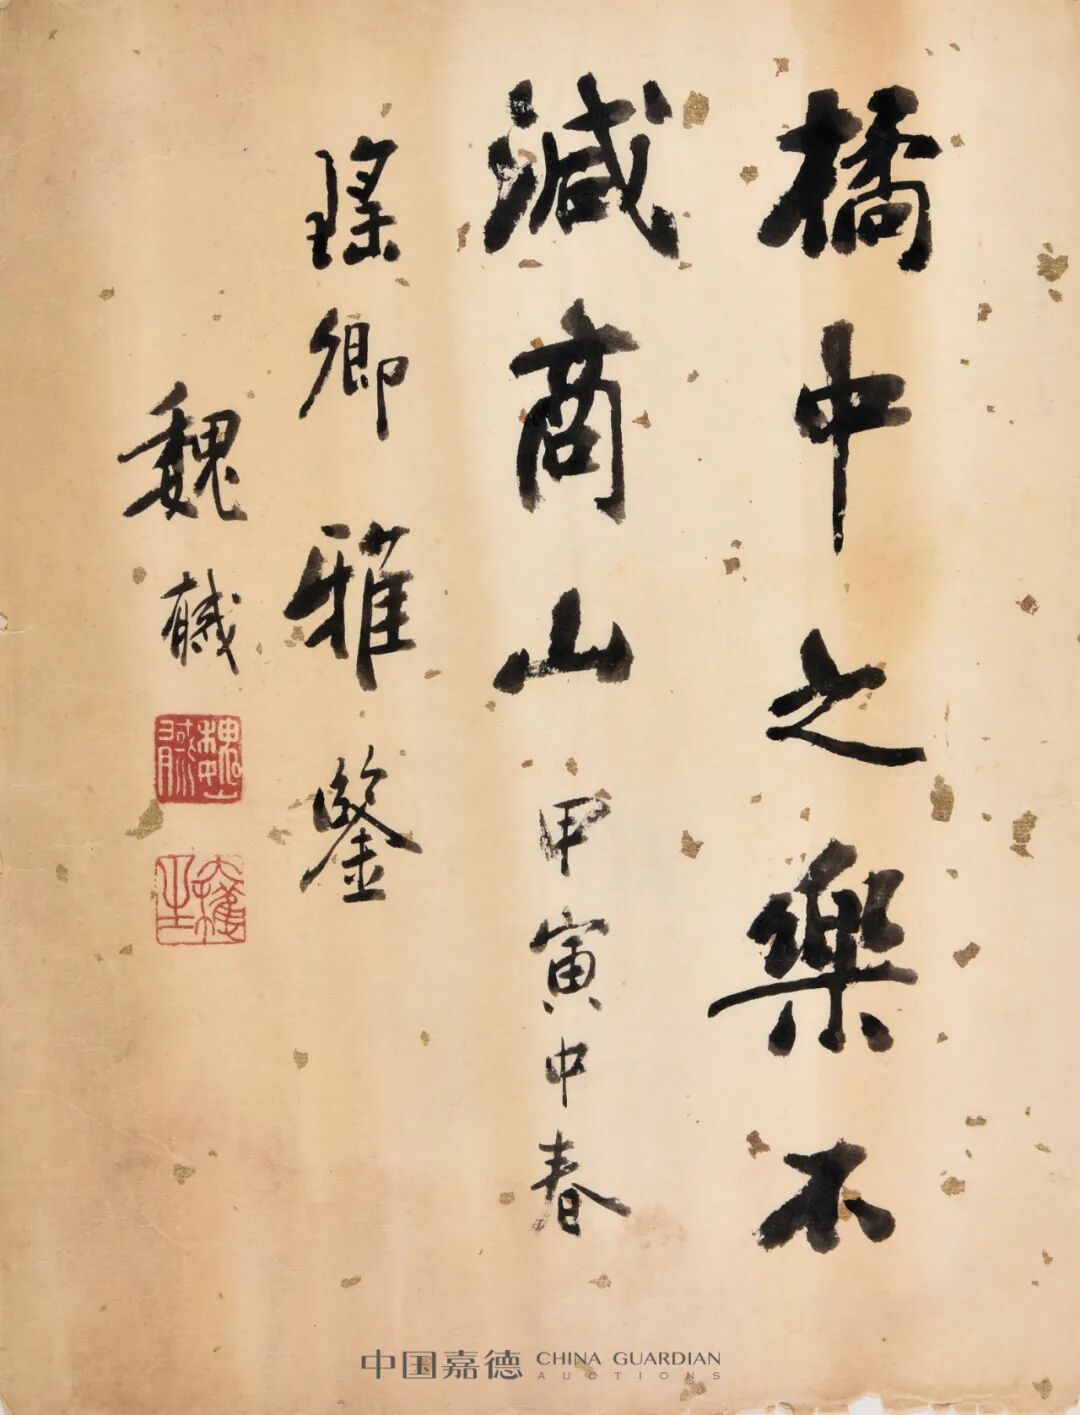 橘中之樂不
減商山 甲寅中春
瑤卿雅鑒
魏戫
中国嘉德 CHINA GUARDIAN
AUCTIONS